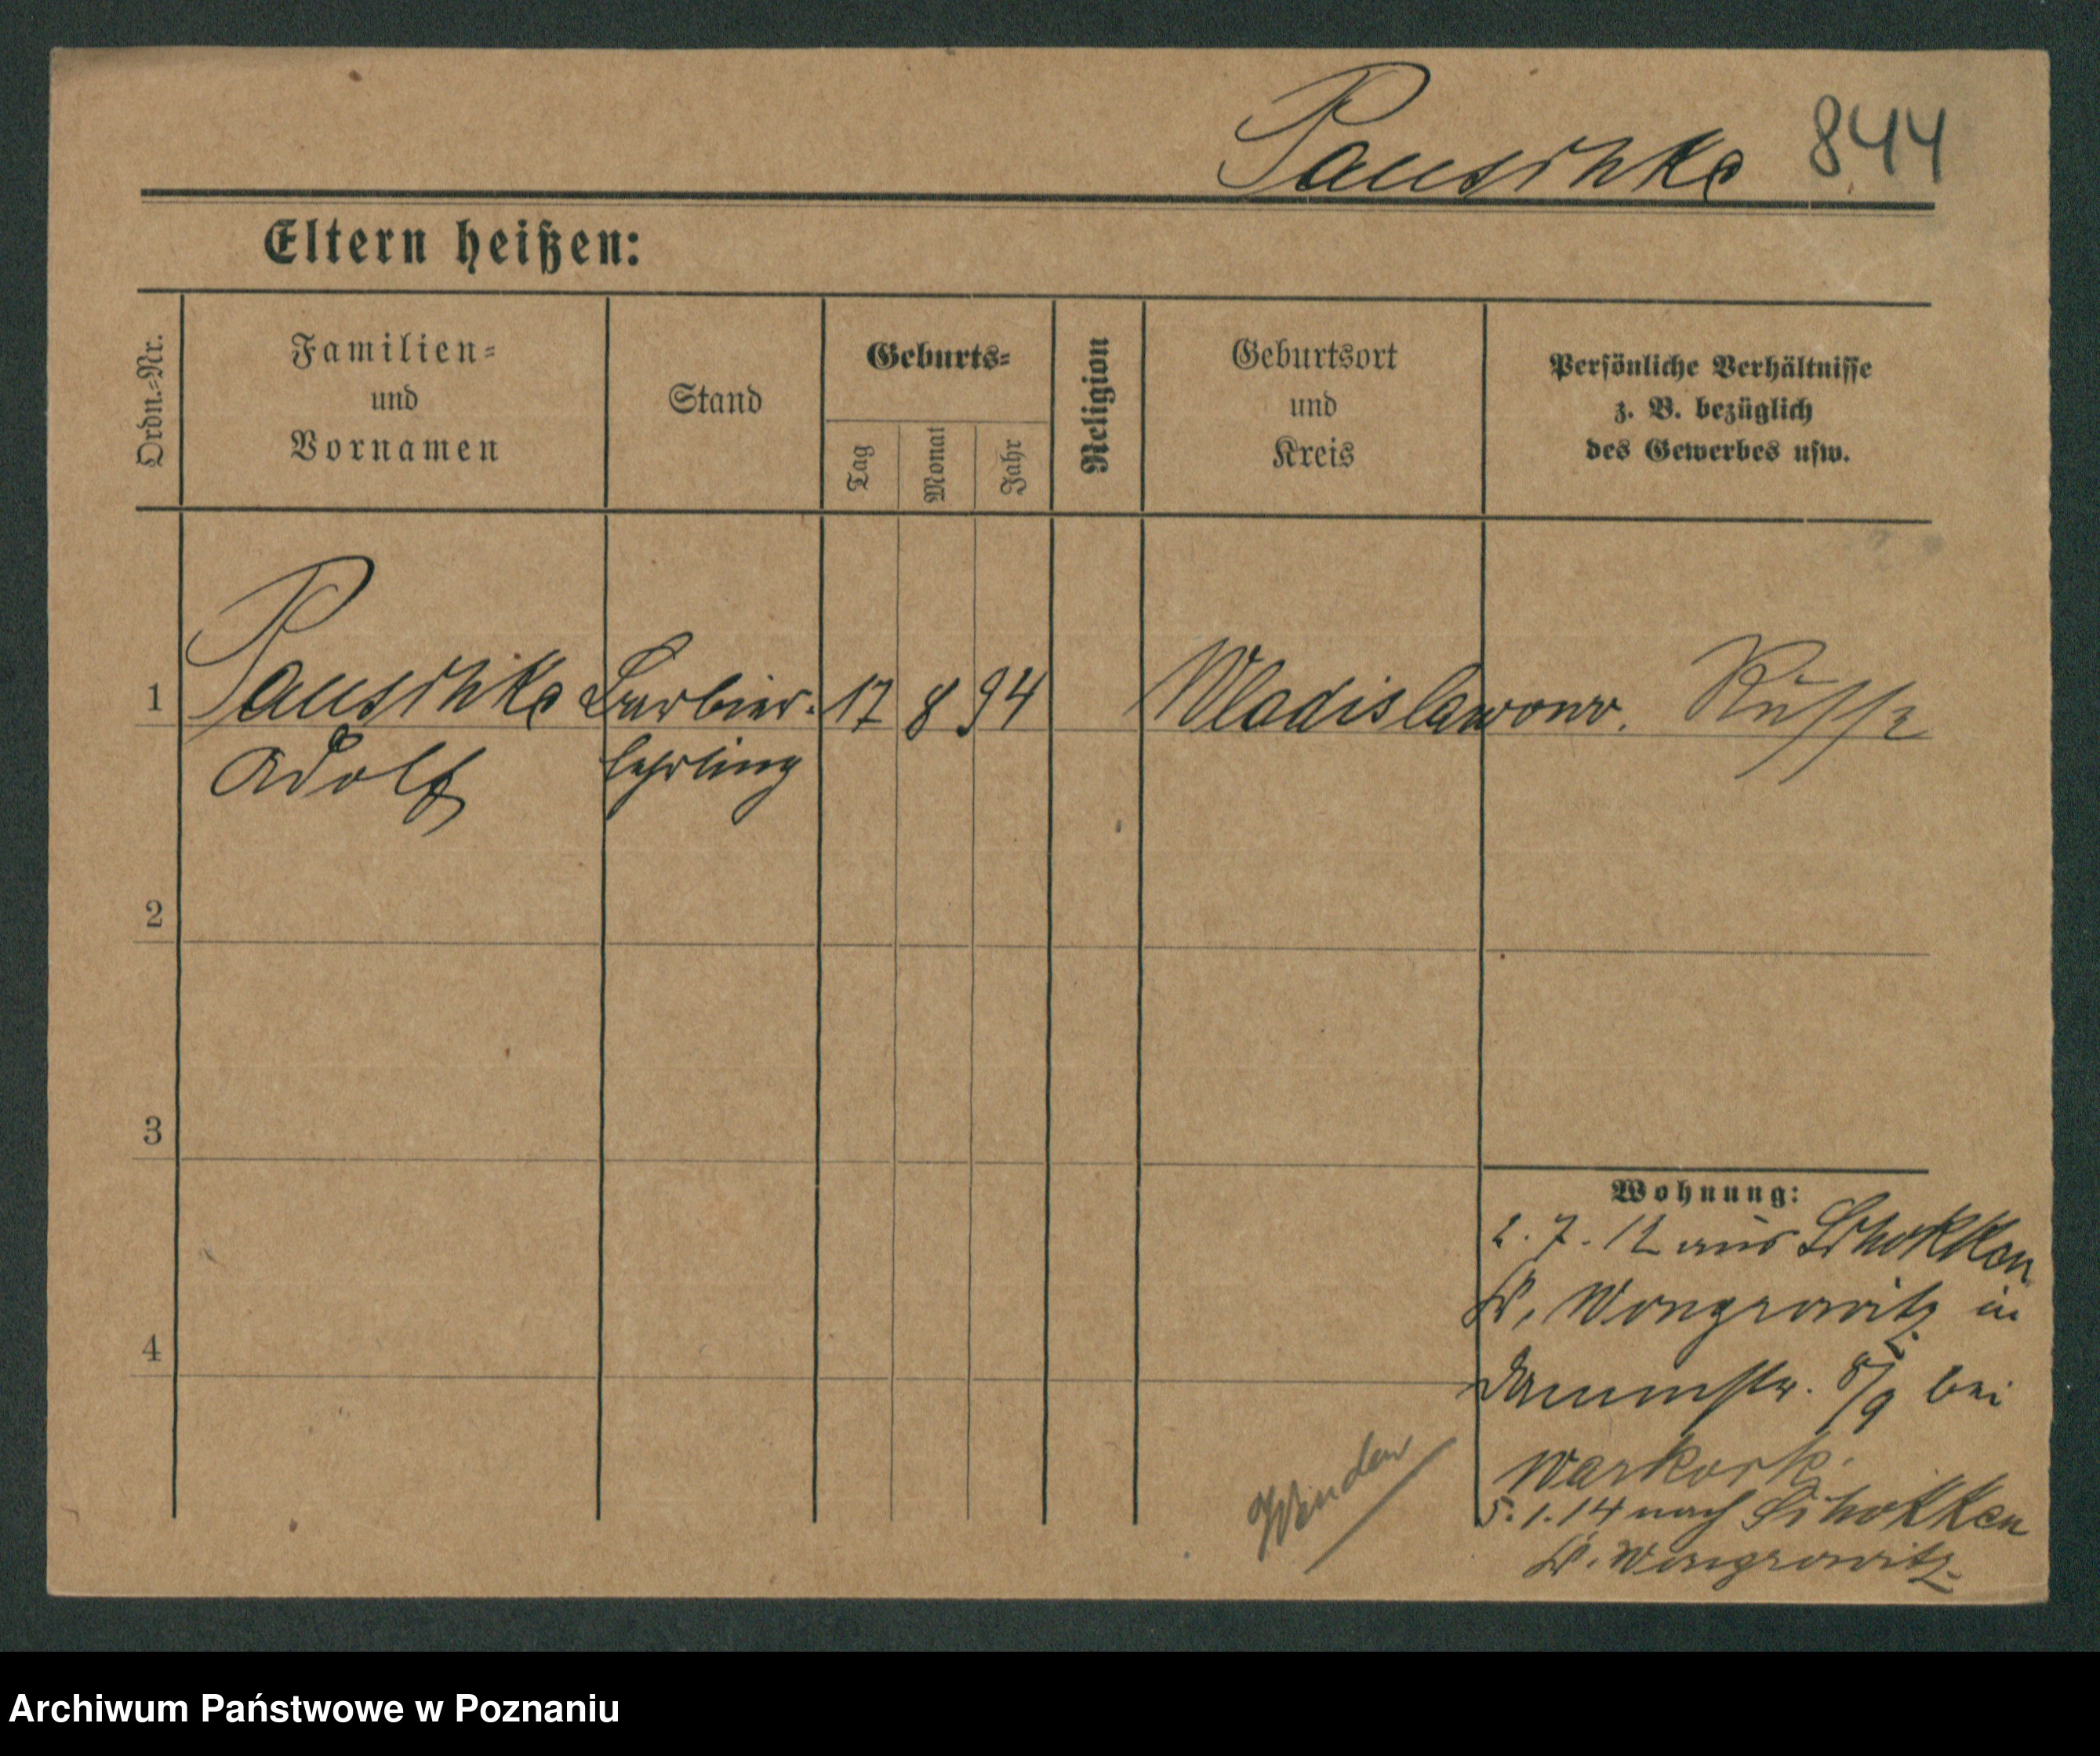 Pauschke 844
Eltern heißen:
Ordn.-Nr.
Familien-
und
Vornamen
Stand
Geburts-
Tag
Monat
Jahr
Religion
Geburtsort
und
Kreis
Persönliche Verhältnisse
z. B. bezüglich
des Gewerbes usw.
1 Pauschke Barbier- 17 8 94 Wladislawow. Russe
Adolf lehrling
2
3
4
Wohnung:
2. 7. 12 aus Schokken
Kr. Wongrowitz in
Dammstr. 8/9 bei
5. 1. 14 nach Schokken
Kr. Wongrowitz.
Wenden
Archiwum Państwowe w Poznaniu